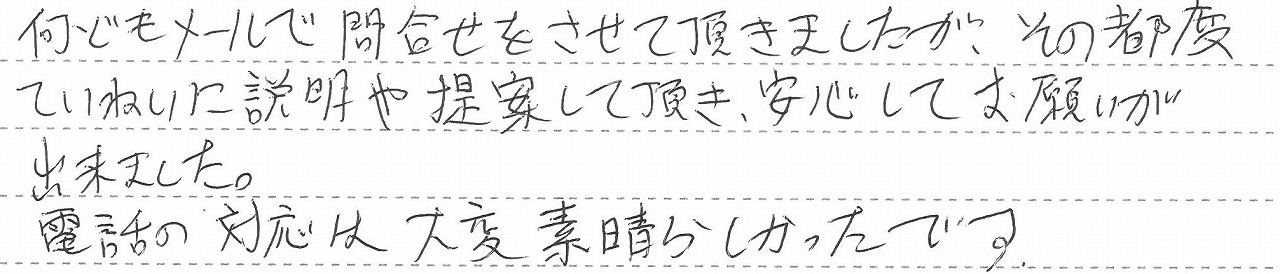 何どもメールで問合せをさせて頂きましたが、その都度
ていねいに説明や提案して頂き、安心してお願いが
出来ました。
電話の対応は大変素晴らしかったです.